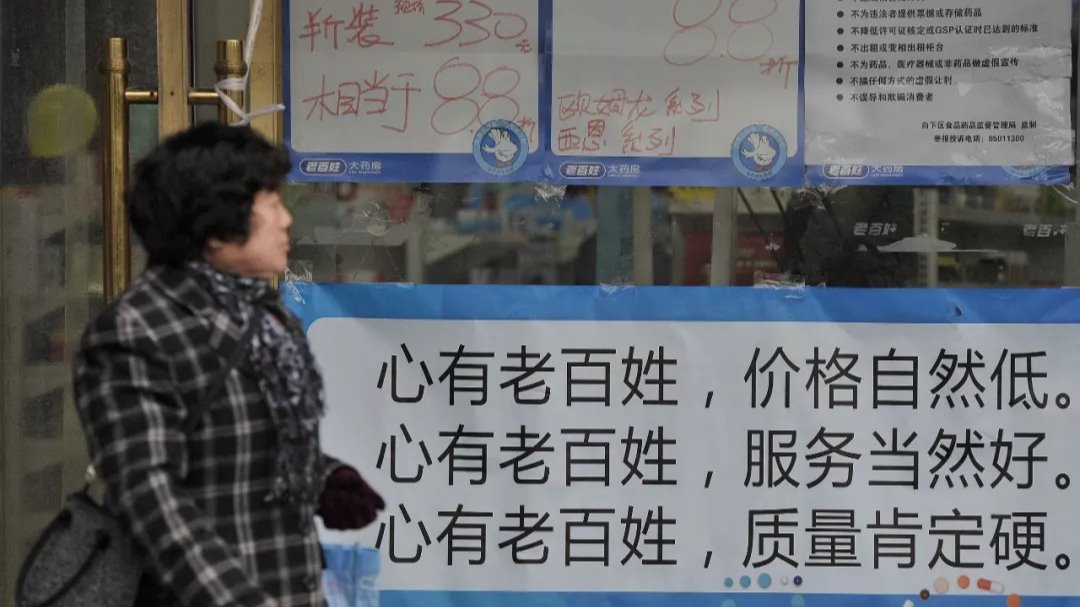 半折装 现场330元
相当于 8.8折
8.8折
欧姆龙 系列
西恩 系列
老百姓 大药房
老百姓 大药房
不为违法者提供票据或存储药品
不降低许可证核定或GSP认证时已达到的标准
不出租或变相出租柜台
不为药品、医疗器械或非药品做虚假宣传
不搞任何方式的虚假让利
不误导和欺骗消费者
白下区食品药品监督管理局 监制
举报投诉电话:85011380
老百姓 大药房
老百姓
老百姓
心有老百姓，价格自然低。
心有老百姓，服务当然好。
心有老百姓，质量肯定硬。